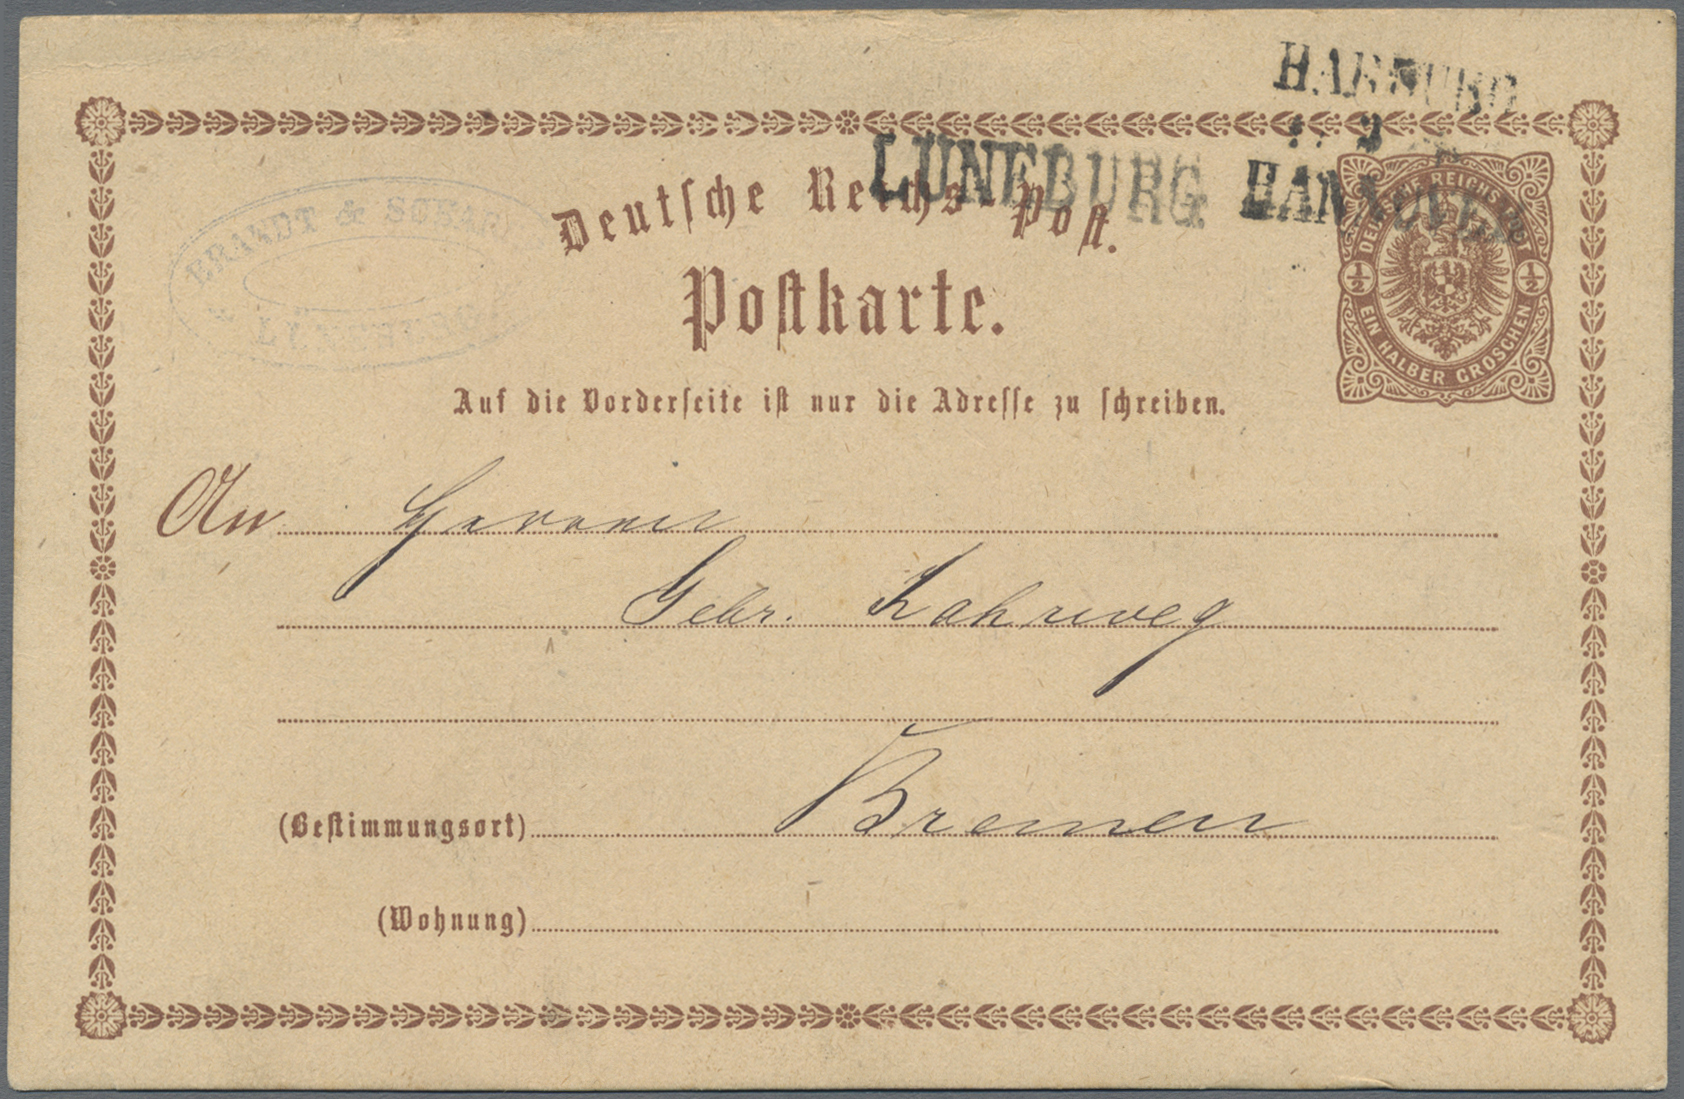 HARBURG
LÜNEBURG HANNOVER
BRANDT & SCHAP
LÜNEBURG
Deutsche Reichs-Post.
Postkarte.
DEUTSCHE REICHS-POST
½ ½
EIN HALBER GROSCHEN
Auf die Vorderseite ist nur die Adresse zu schreiben.
An Herren
Gebr. Kahrweg
Bremen
(Bestimmungsort)
(Wohnung)